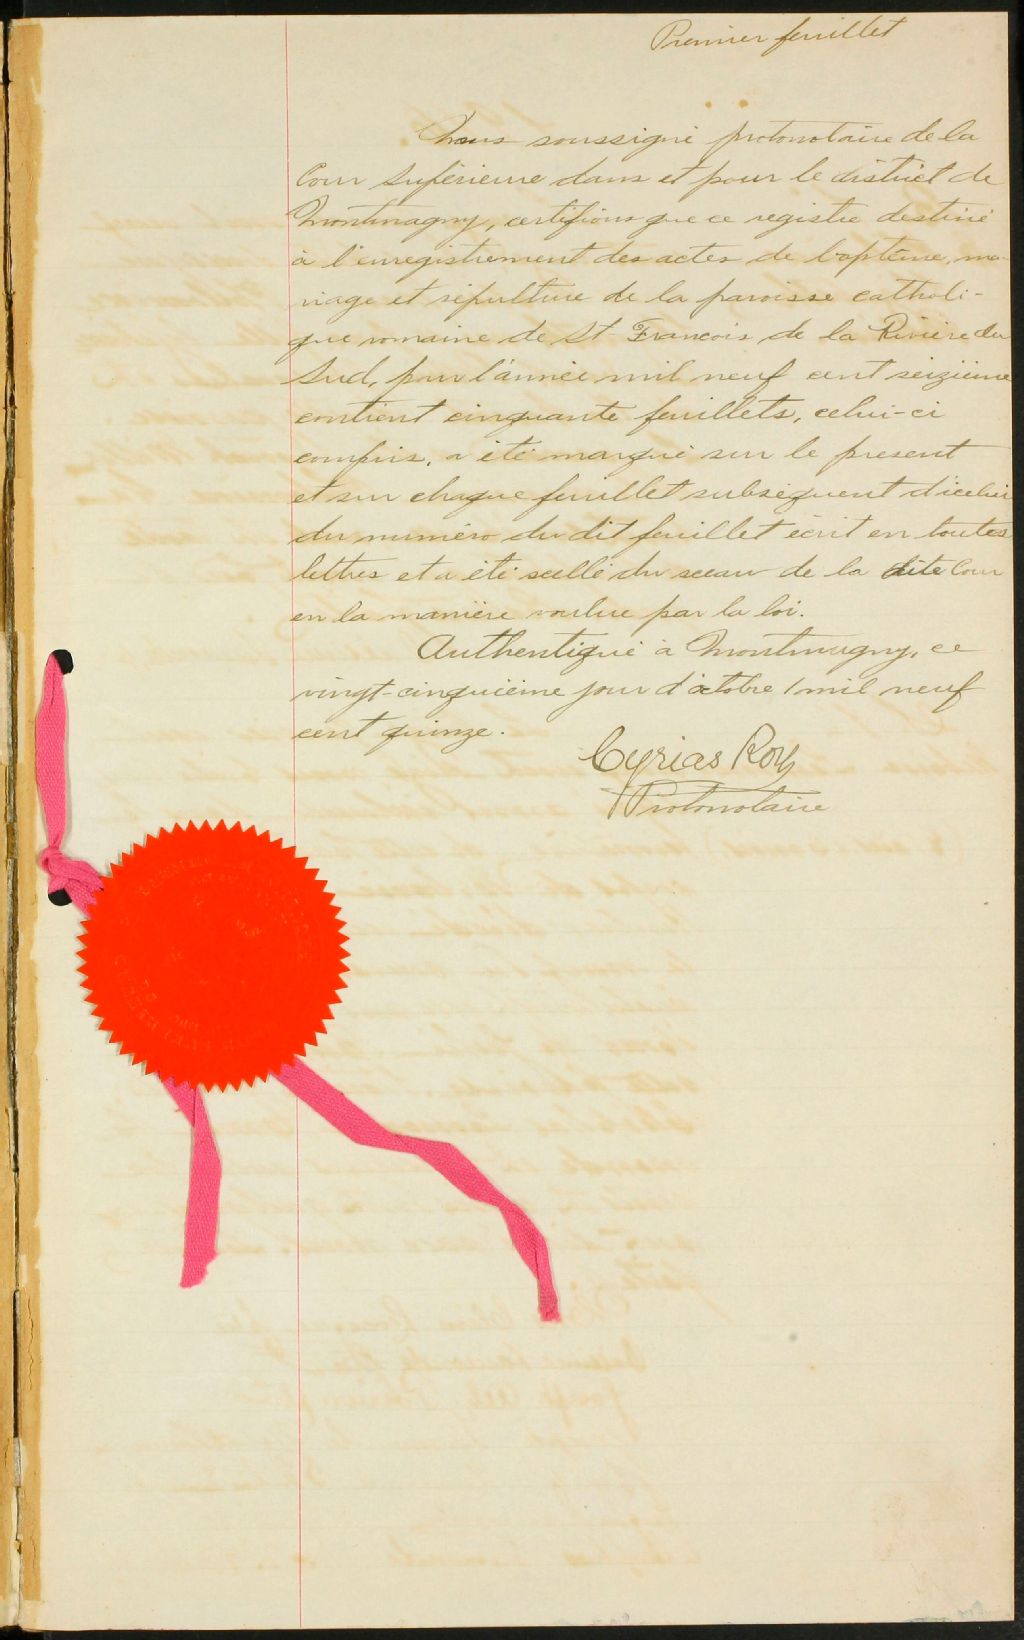 Premier feuillet
Nous soussigné protonotaire de la
Cour Supérieure dans et pour le district de
Montmagny, certifions que ce registre destiné
à l'enregistrement des actes de baptême, ma-
riage et sépulture de la paroisse catholi-
que romaine de St François de la Rivière du
Sud, pour l'année mil neuf cent seizième
contient cinquante feuillets, celui-ci
compris, a été marqué sur le present
et sur chaque feuillet subséquent d'icelui
du numéro du dit feuillet écrit en toutes
lettres et a été scellé du sceau de la dite Cour
en la manière voulue par la loi.
Authentiqué à Montmagny, ce
vingt-cinquième jour d'octobre mil neuf
cent quinze.
Cyrias Roy
Protonotaire